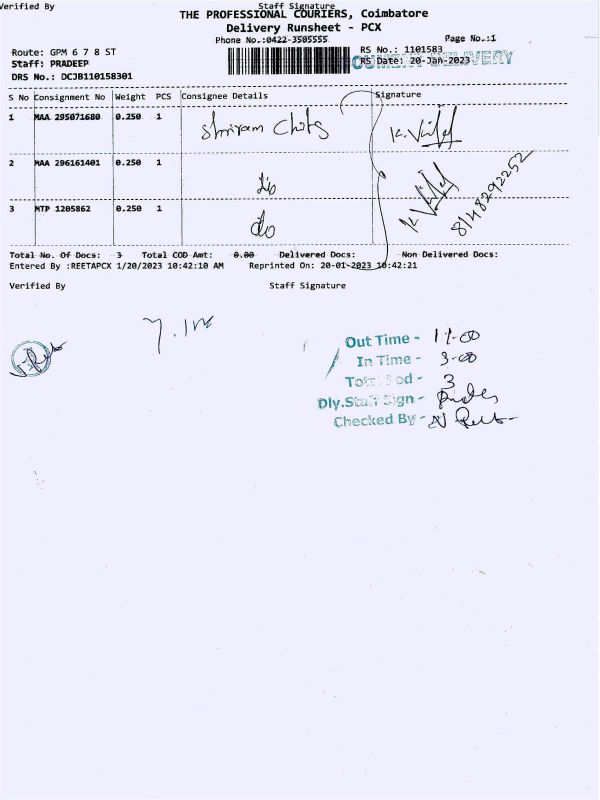 Verified By Staff Signature
THE PROFESSIONAL COURIERS, Coimbatore
Delivery Runsheet - PCX
Phone No.:0422-3505555 Page No.:1
Route: GPM 6 7 8 ST RS No.: 1101583
Staff: PRADEEP RS Date: 20-Jan-2023 DELIVERY
DRS No.: DCJB110158301
S No Consignment No Weight PCS Consignee Details Signature
1 MAA 295071680 0.250 1 Shriram Chits
2 MAA 296161401 0.250 1 do 8148292252
3 MTP 1205862 0.250 1 do
Total No. Of Docs: 3 Total COD Amt: 0.00 Delivered Docs: Non Delivered Docs:
Entered By :REETAPCX 1/20/2023 10:42:10 AM Reprinted On: 20-01-2023 10:42:21
Verified By Staff Signature
Out Time - 11-00
In Time - 3-00
Total Pod - 3
Dly.Staff Sign -
Checked By -